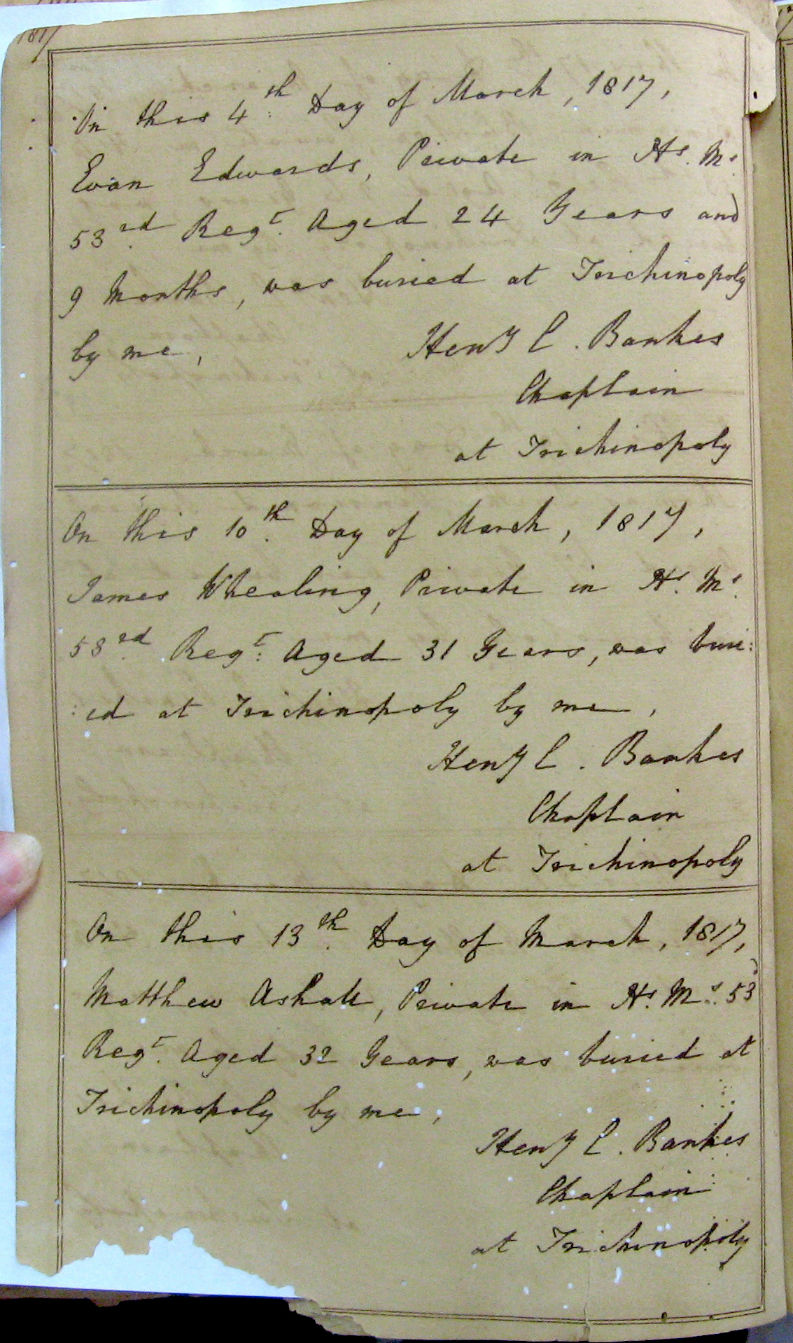 1817
On this 4th Day of March, 1817,
Evan Edwards, Private in Hs. Ms.
53rd Regt. Aged 24 Years and
9 Months, was buried at Trichinopoly
by me, Heny C. Bankes
Chaplain
at Trichinopoly
On this 10th Day of March, 1817,
James Whealing, Private in Hs. Ms.
53rd Regt. Aged 31 Years, was buri:
:ed at Trichinopoly by me,
Heny C. Bankes
Chaplain
at Trichinopoly
On this 13th Day of March, 1817,
Matthew Ashall, Private in Hs. Ms. 53d
Regt. Aged 32 Years, was buried at
Trichinopoly by me,
Heny C. Bankes
Chaplain
at Trichinopoly